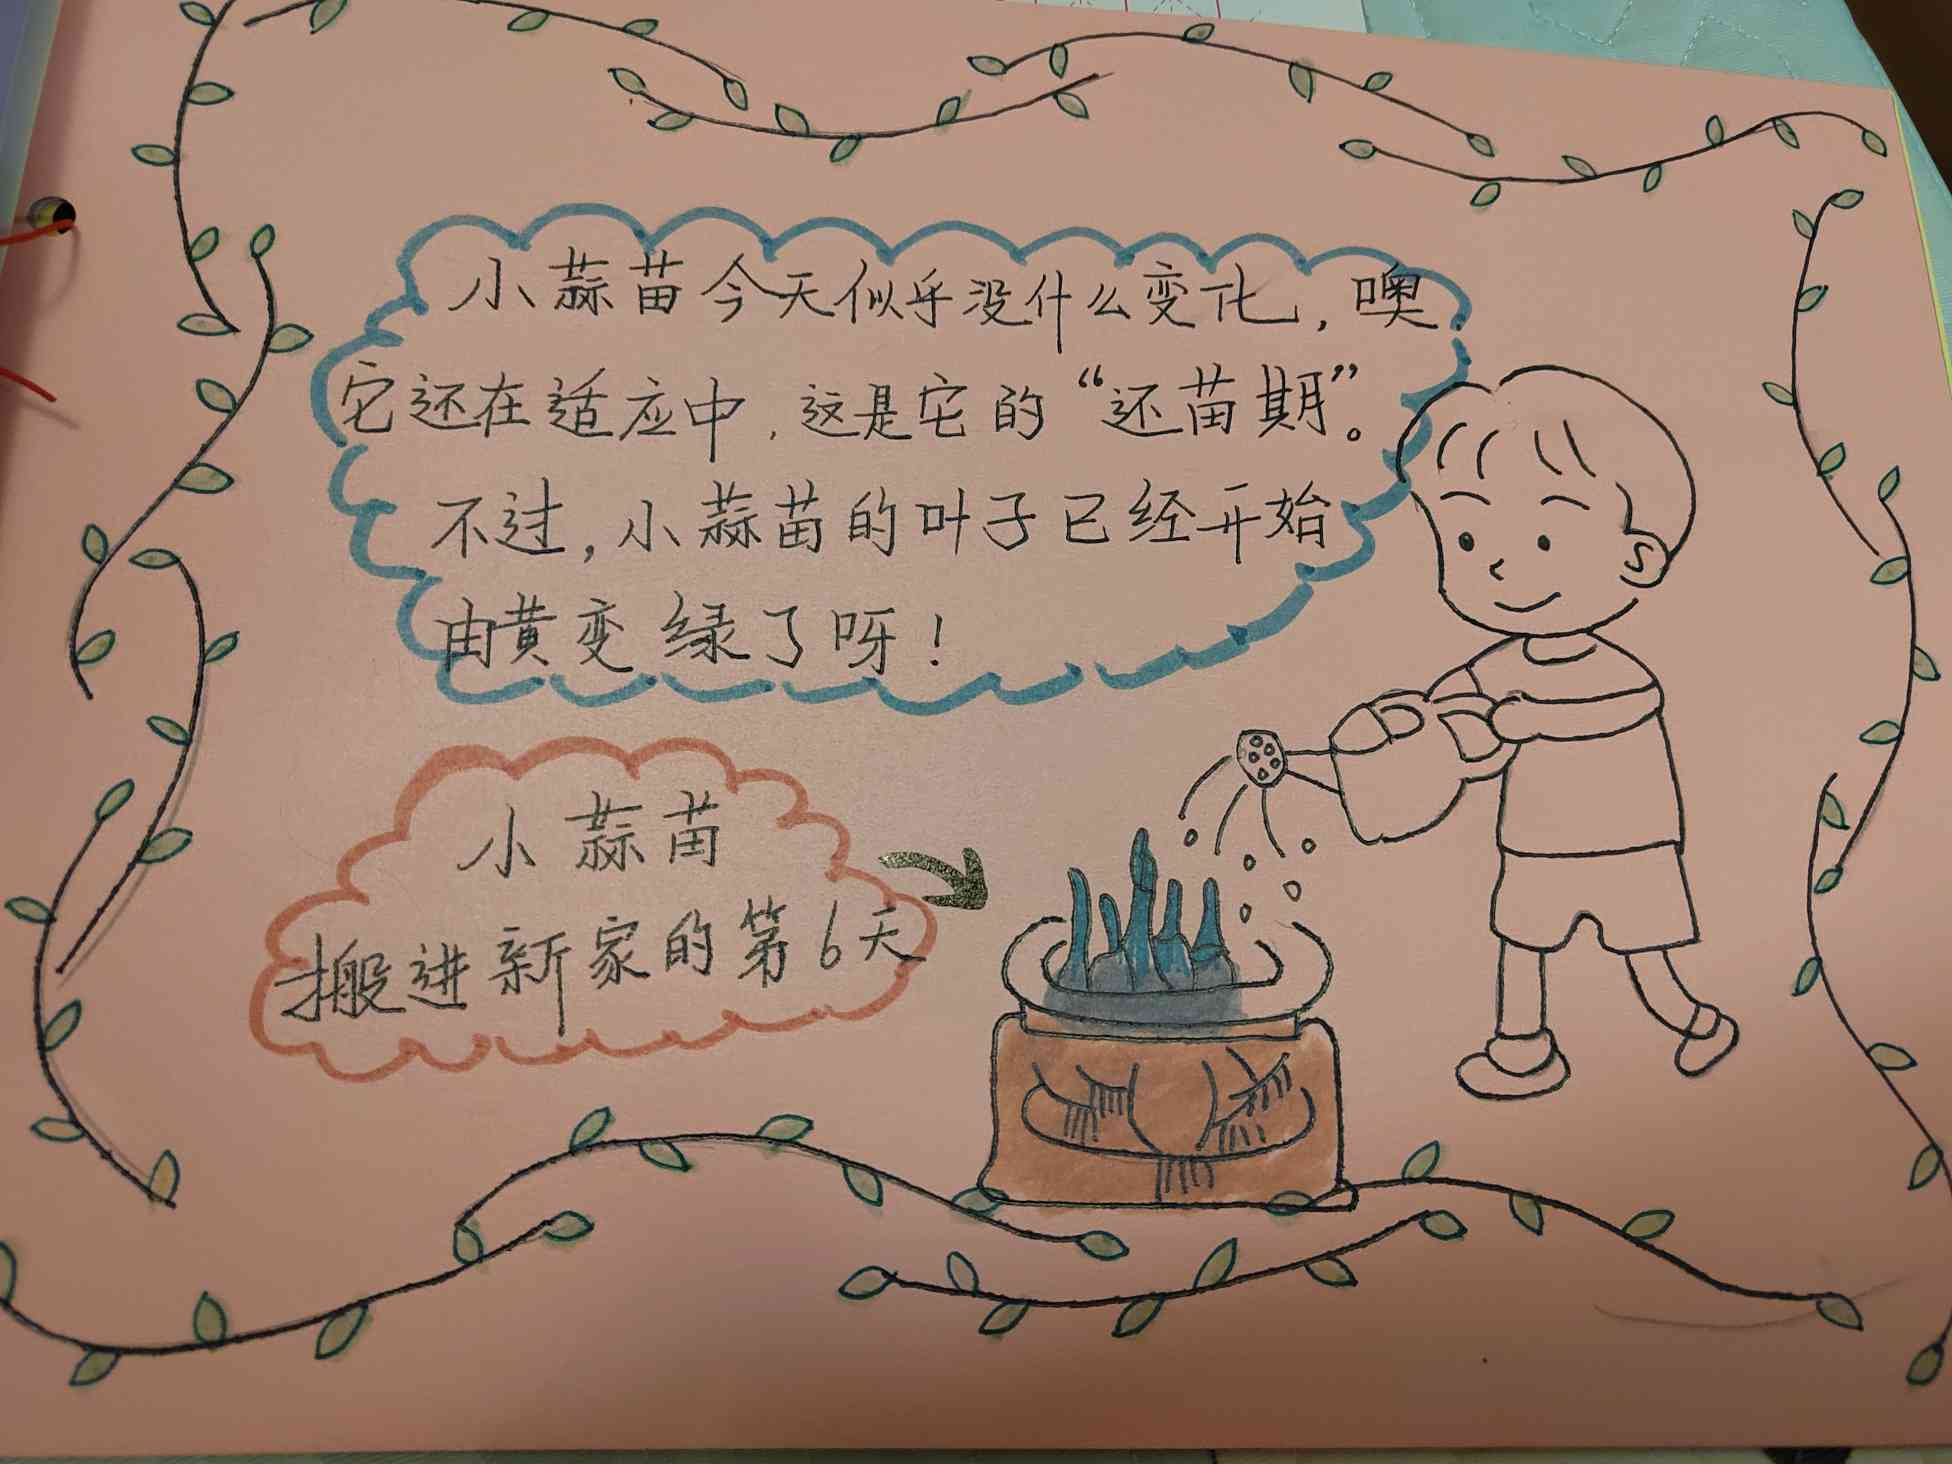 小蒜苗今天似乎没什么变化，噢
它还在适应中，这是它的“还苗期”。
不过，小蒜苗的叶子已经开始
由黄变绿了呀！
小蒜苗
搬进新家的第6天